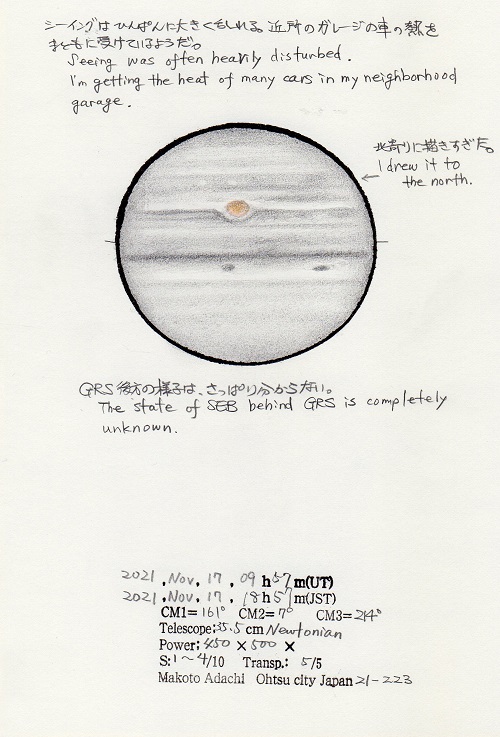 シーイングはひんぱんに大きくもしれる。近所のガレージの車の熱を
まともに受けているようだ。
Seeing was often heavily disturbed.
I'm getting the heat of many cars in my neighborhood
garage.
北寄りに描きすぎた。
I drew it to
the north.
GRS後方の様子は、さっぱり分からない。
The state of SEB behind GRS is completely
unknown.
2021, Nov, 17, 09 h 57 m(UT)
2021, Nov, 17, 18 h 57 m(JST)
CM1= 161° CM2= 7° CM3= 214°
Telescope; 35.5 cm Newtonian
Power; 450 × 500 ×
S: 1~4/10 Transp.: 5/5
Makoto Adachi Ohtsu city Japan 21-223